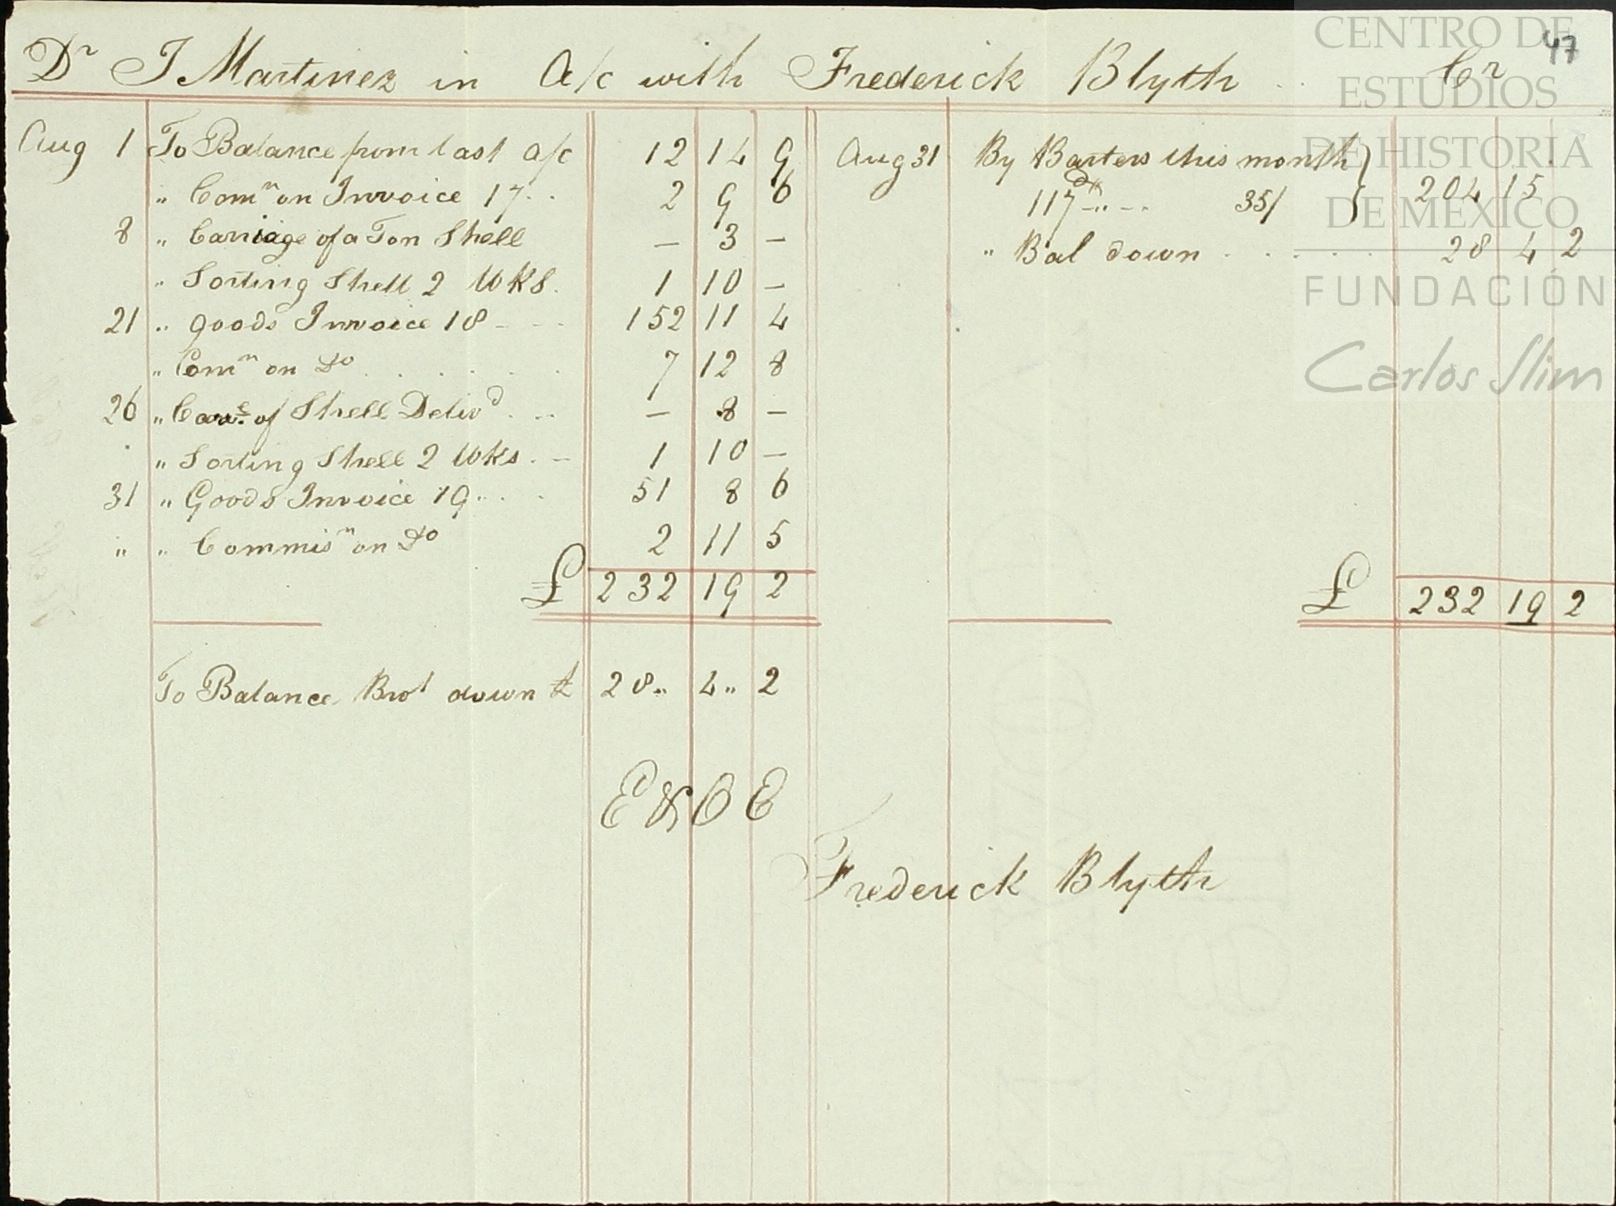 47
Dr J Martinez in a/c with Frederick Blyth Cr
Aug 1 To Balance from last a/c 12 14 9
" Comn on Invoice 17 2 9 6
8 " Carriage of a Ton Shell — 3 —
" Sorting Shell 2 Wks 1 10 —
21 " goods Invoice 18 152 11 4
" Comn on Do 7 12 8
26 " Carre of Shell Delivd — 8 —
" Sorting Shell 2 Wks 1 10 —
31 " Goods Invoice 19 51 8 6
" " Commisn on Do 2 11 5
£ 232 19 2
To Balance Brot down £ 28 " 4 " 2
Aug 31 By Barters this month
117 35/ 204 15
" Bal down 28 4 2
£ 232 19 2
E & O E
Frederick Blyth
CENTRO DE
ESTUDIOS
DE HISTORIA
DE MÉXICO
FUNDACIÓN
Carlos Slim